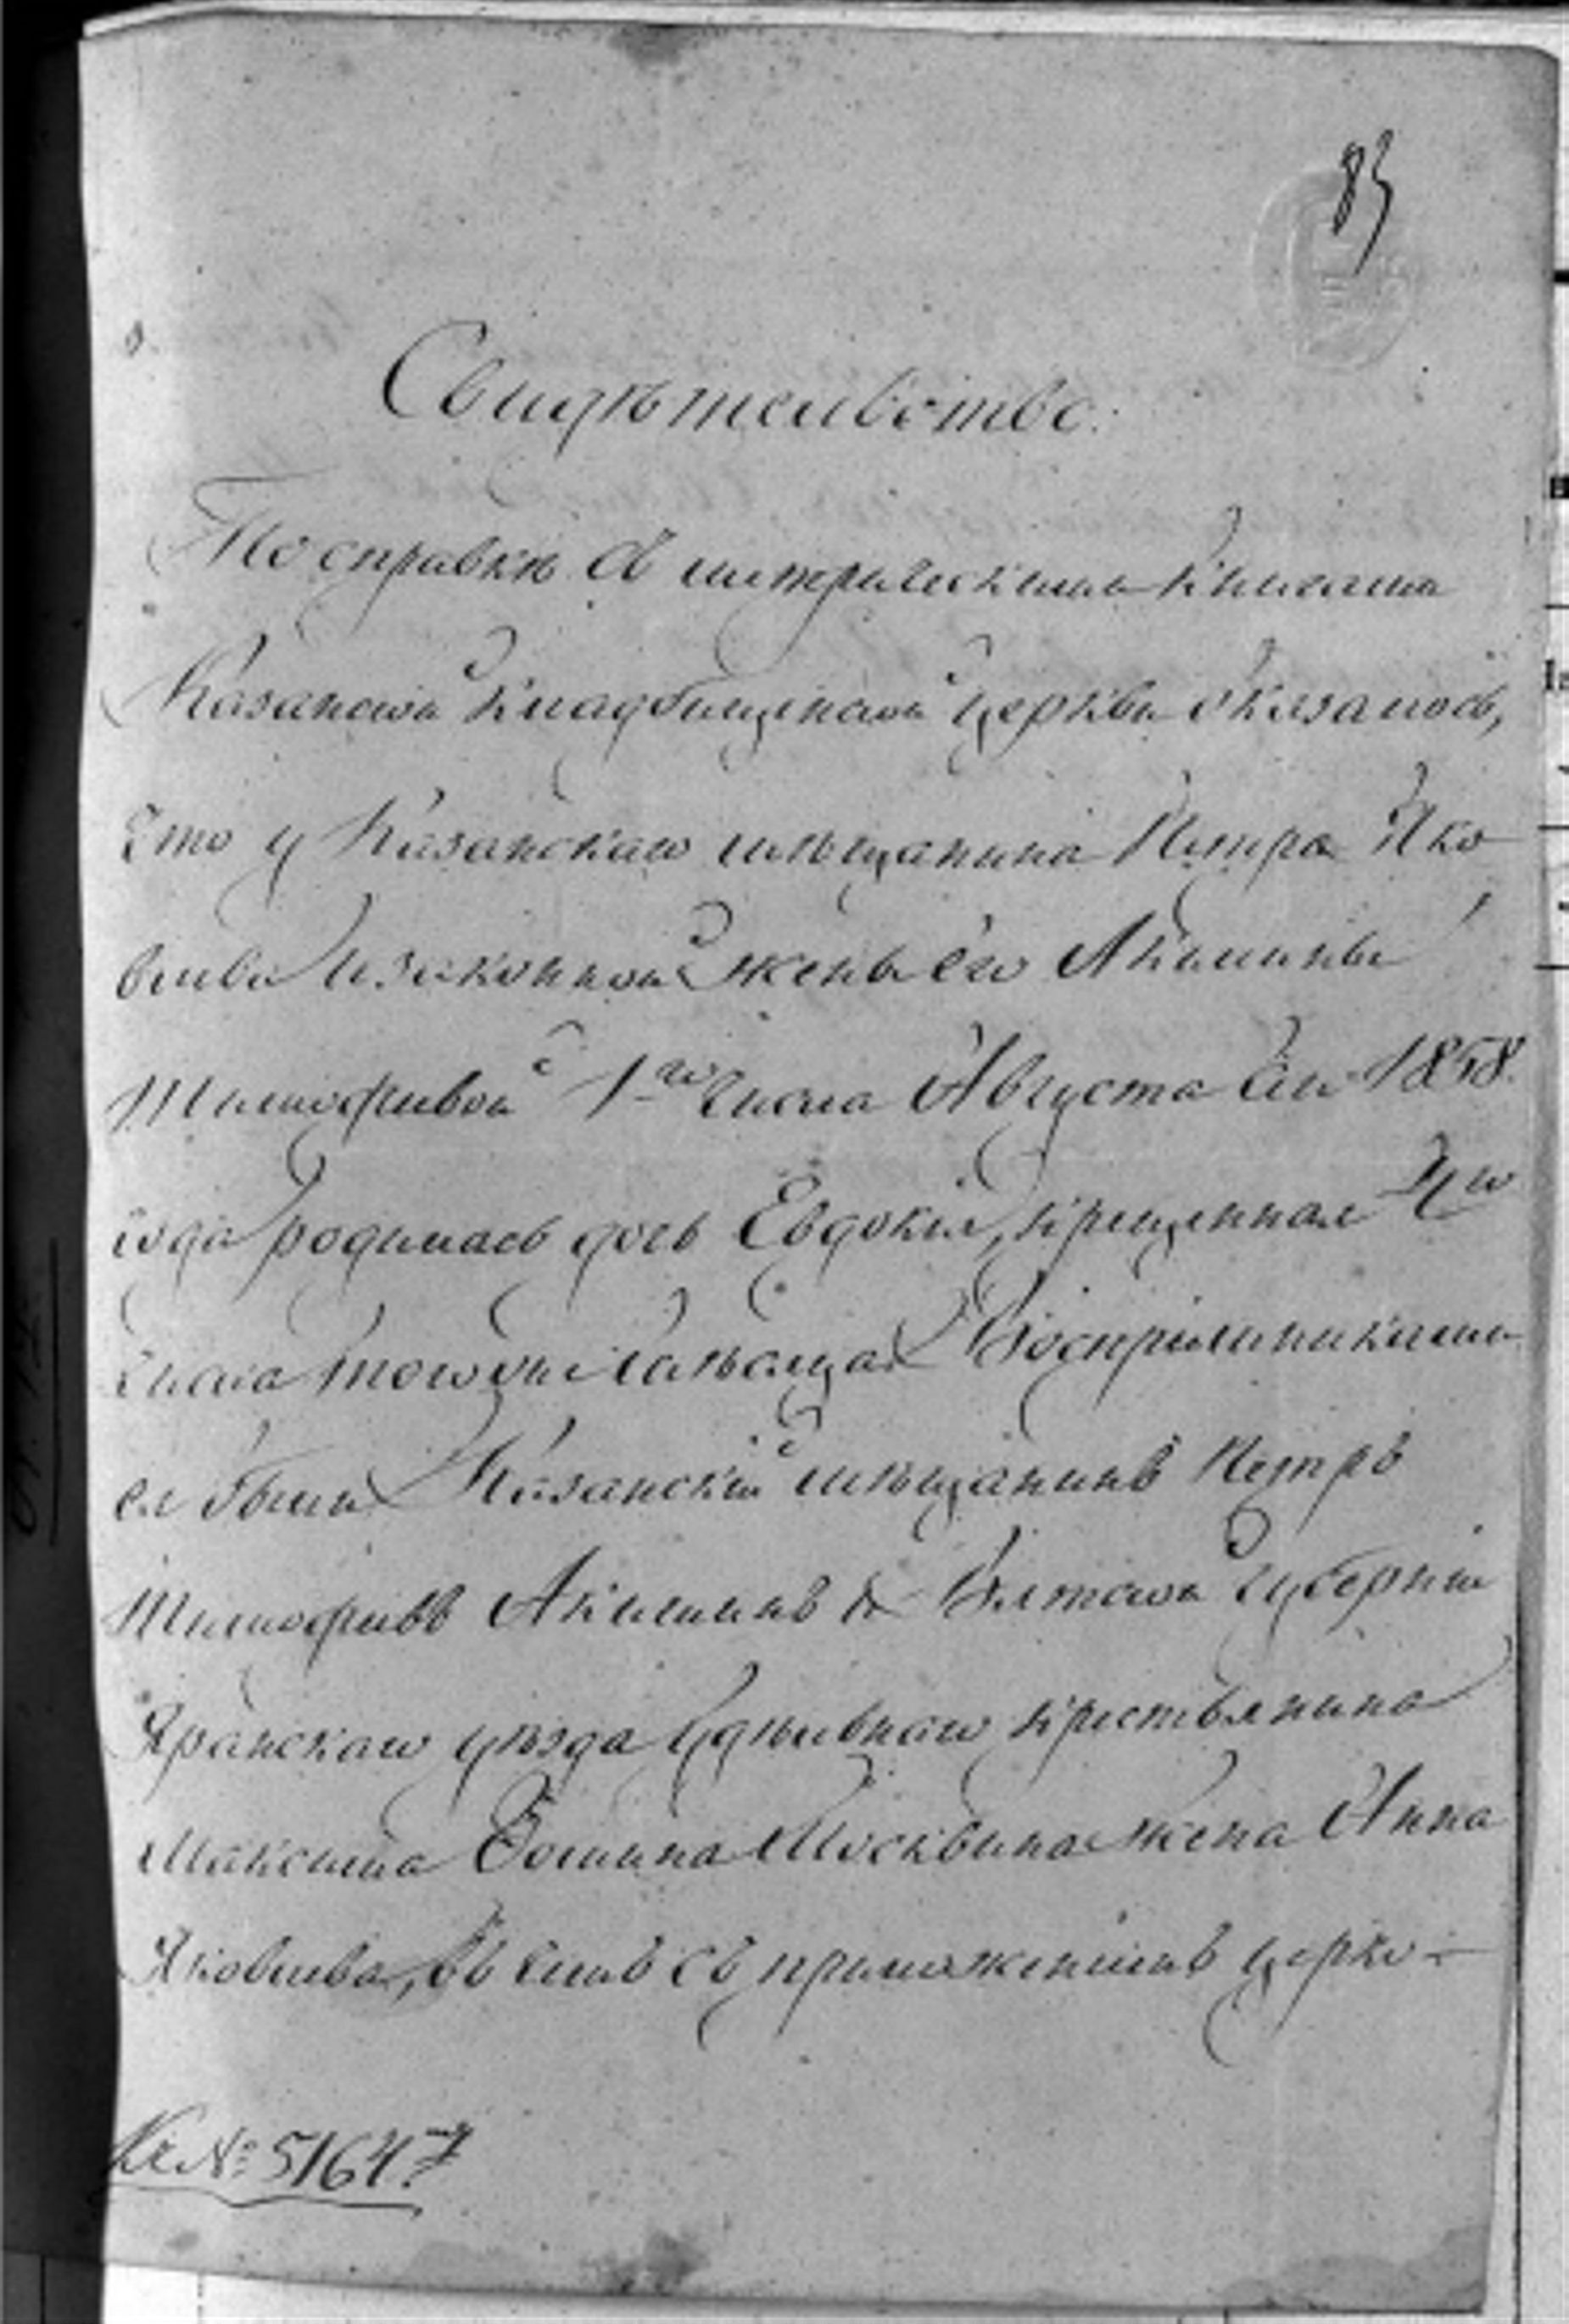 83
Свидѣтельство.
По справкѣ съ метрическими книгами
Казанской Кладбищенской Церкви оказалось,
что у Казанскаго мѣщанина Петра Яко-
влева и законной жены его Акилины
Тимофѣевой 1го числа Августа сего 1858.
года родилась дочь Евдокія, крещенная 3го
числа тогоже мѣсяца. Воспріемниками
ея были Казанскій мѣщанинъ Петръ
Тимофѣевъ Акилинъ и Вятской губерніи
Яранскаго уѣзда Удѣльнаго крестьянина
Максима Фомина Москвина жена Анна
Яковлева, въ чемъ съ приложеніемъ церко-
Къ № 51647